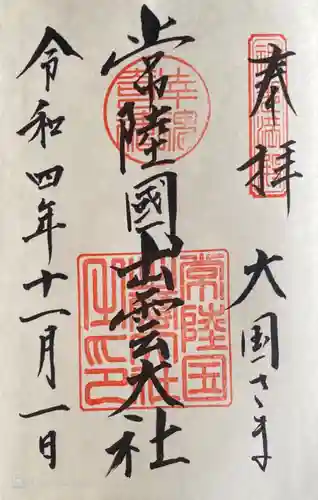 奉拝
大国さま
常陸國出雲大社
令和四年十一月一日
常陸国